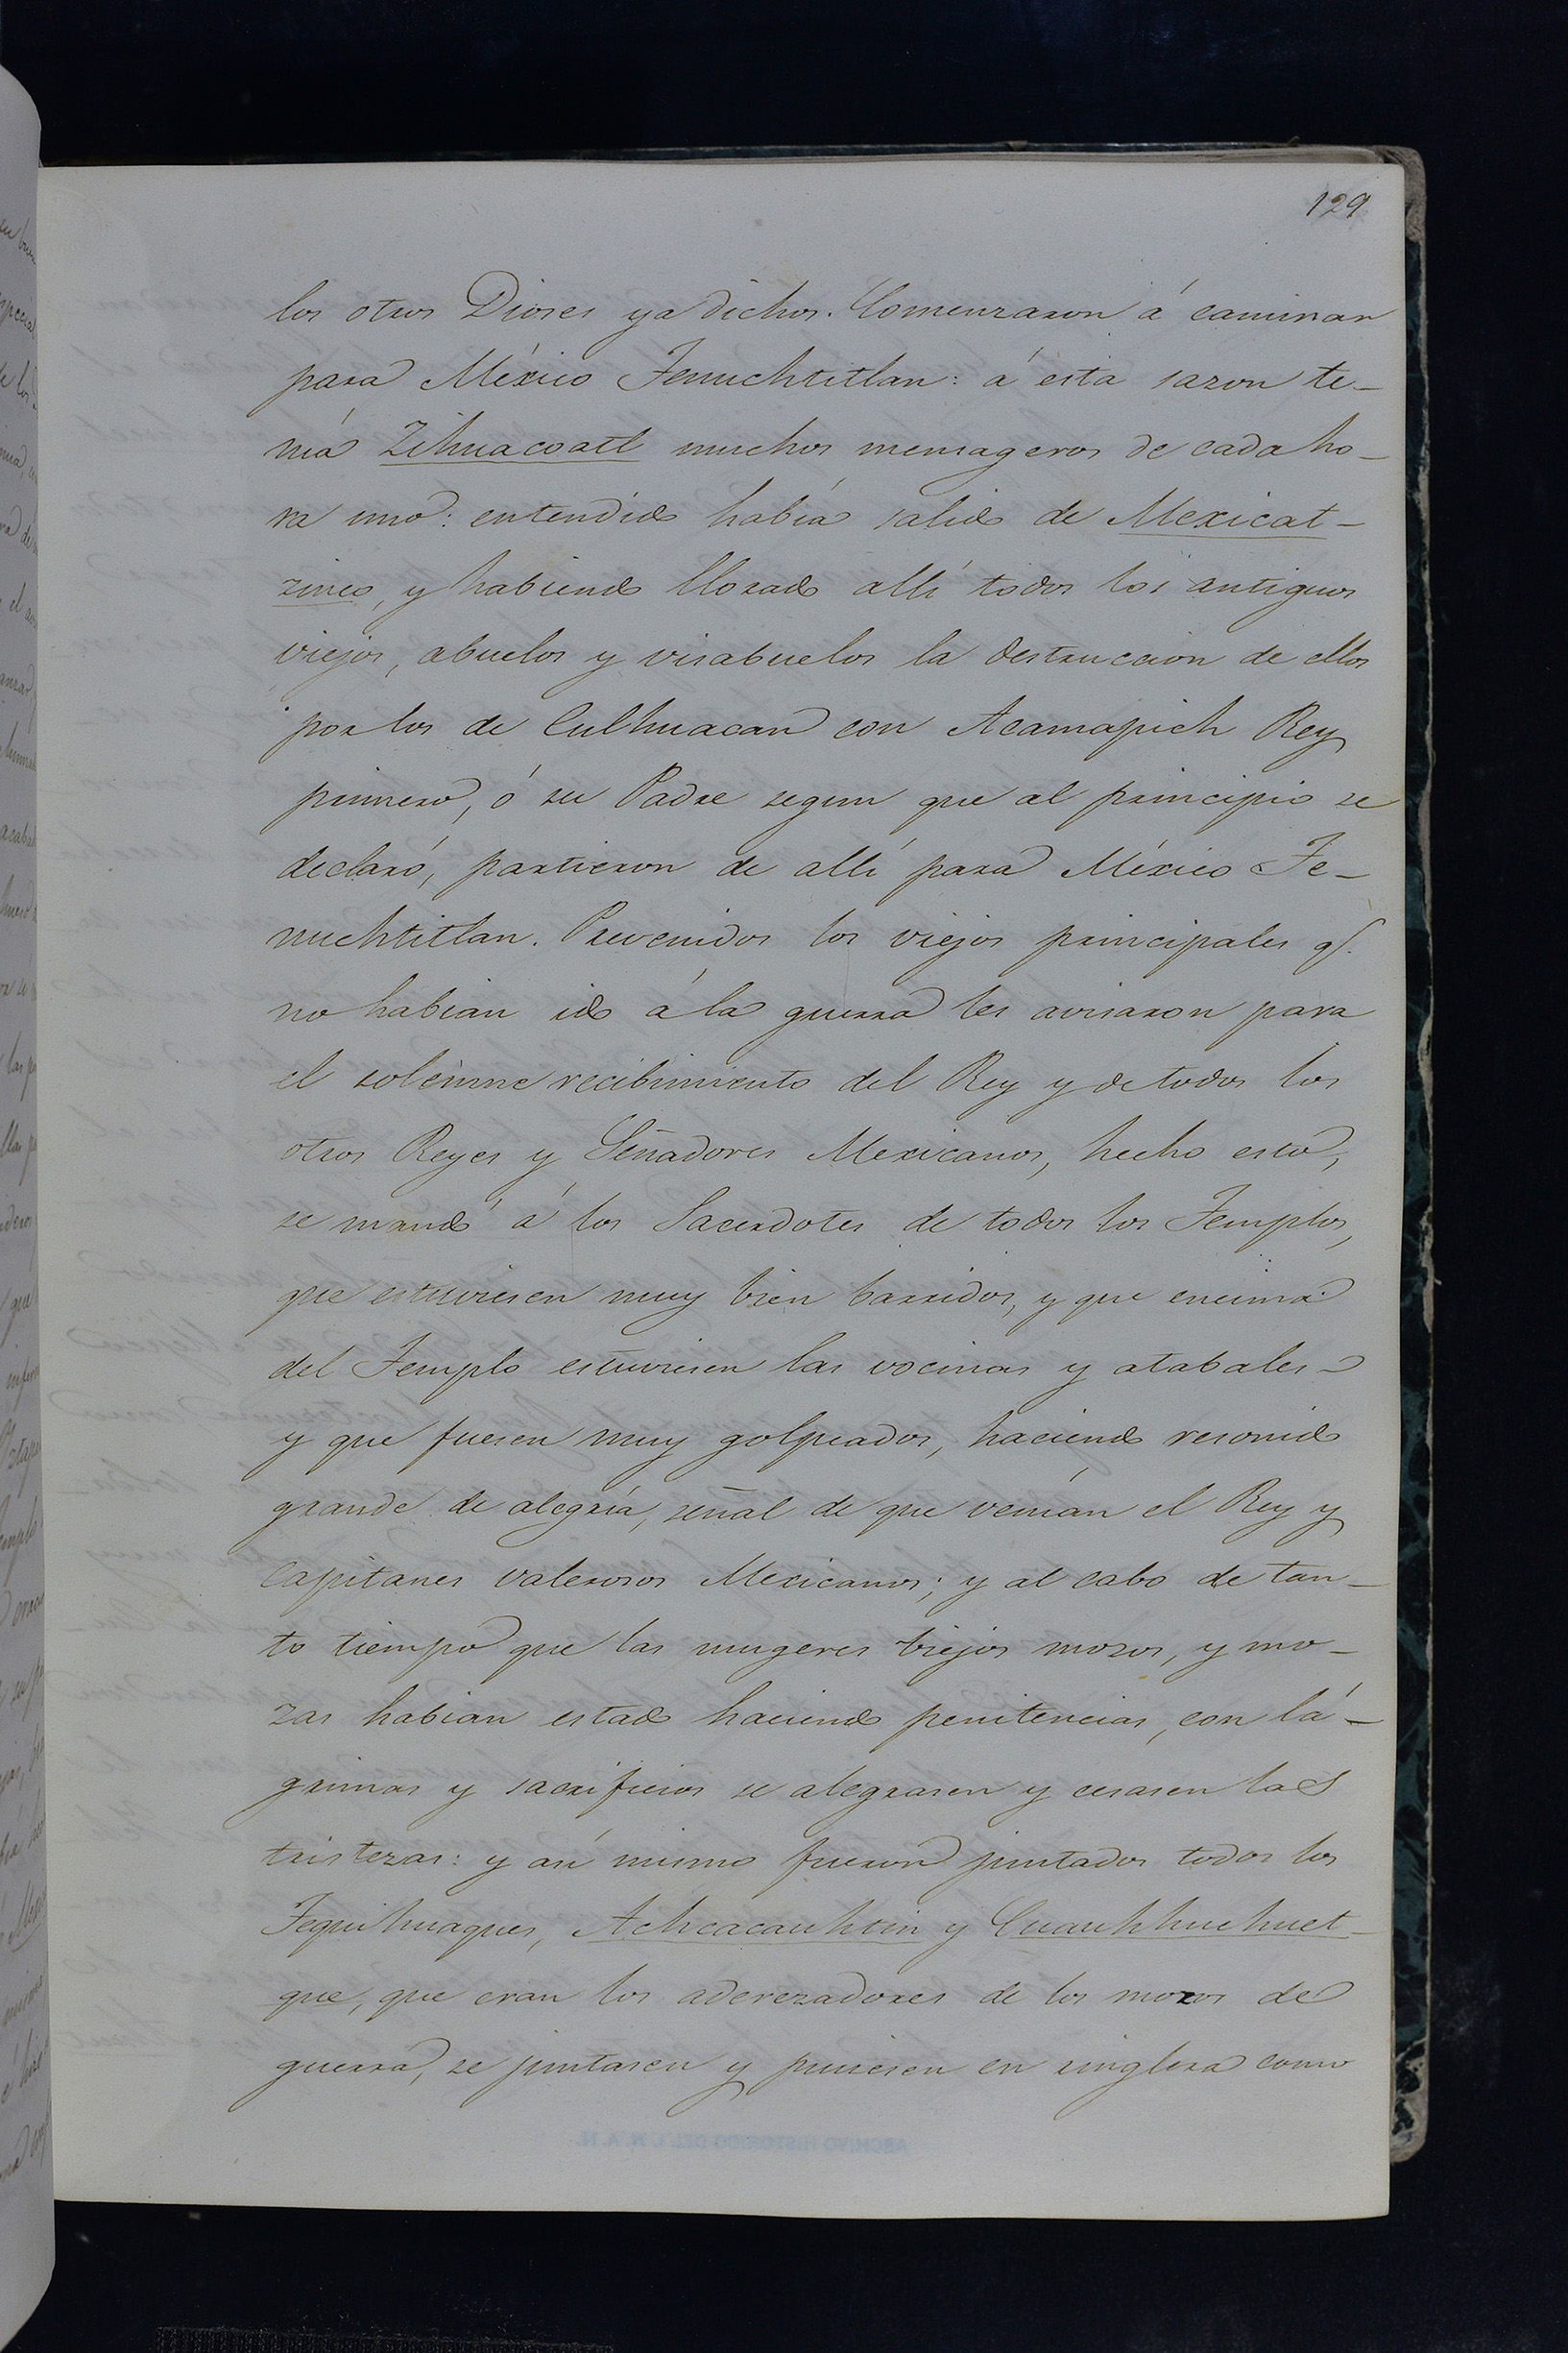 129
los otros Dioses ya dichos. Comenzaron á caminar
para México Tenuchtitlan: á esta sazon te-
nia Zihuacoatl muchos mensageros de cada ho-
ra uno: entendido había salido de Mexicat-
zinco, y habiendo llorado alli todos los antiguos
viejos, abuelos y visabuelos la destruccion de ellos
por los de Culhuacan con Acamapich Rey
primero, ó su Padre segun que al principio se
declaró, partieron de allí para México Te-
nuchtitlan. Prevenidos los viejos principales q.
no habian ido á la guerra les avisaron para
el solémne recibimiento del Rey y de todos los
otros Reyes y Señadores Mexicanos, hecho esto,
se mandó á los Sacerdotes de todos los Templos,
que estuviesen muy bien barridos, y que encima
del Templo estuviesen las vocinas y atabales
y que fuesen muy golpeados, haciendo resonido
grande de alegría, señal de que venían el Rey y
Capitanes valerosos Mexicanos; y al cabo de tan-
to tiempo que las mugeres viejos mozos, y mo-
zas habian estado haciendo penitencias, con lá-
grimas y sacrificios se alegrasen y cesasen las
tristezas: y así mismo fueron juntados todos los
Tequihuaques, Achcacauhtin y Cuauhhuehuet-
que, que eran los aderezadores de los mozos de
guerra, se juntasen y pusiesen en ringlera como